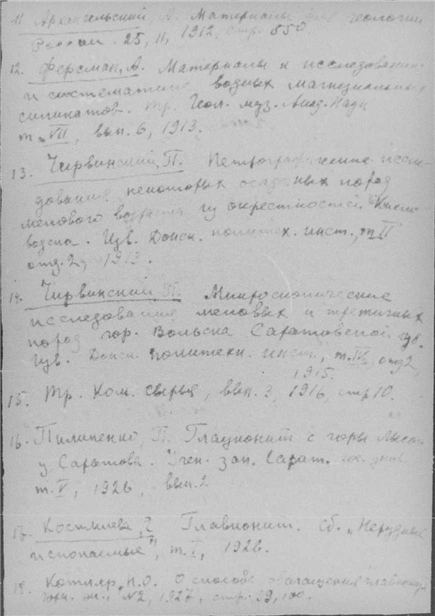 11. Архангельский, А. Материалы для геологии
России. 25, 11, 1912, стр. 550
12. Ферсман, А. Материалы к исследованию
и систематике водных магнезиальных
силикатов. Тр. Геол. муз. Акад. Наук
т. VII, вып. 6, 1913.
13. Чирвинский, П. Петрографические иссле-
дования некоторых осадочных пород
мелового возраста из окрестностей Кисло-
водска. Изв. Донск. политех. инст., т. II
отд. 2, 1913.
14. Чирвинский П. Микроскопические
исследования меловых и третичных
пород гор. Вольска Саратовской губ.
Изв. Донск. политехн. инст., т. IV, отд 2,
1915.
15. Тр. Ком. сырья, вып. 3, 1916, стр 10.
16. Пилипенко, П. Глауконит с горы Лысой
у Саратова. Учен. зап. Сарат.
т. V, 1926, вып. 2
17. Костылева, Е Глауконит. Сб. „Нерудные
ископаемые", т. I, 1926.
18. Котляр, П.О. О способе обогащения глауконита
№2, 1927, стр. 39, 100.